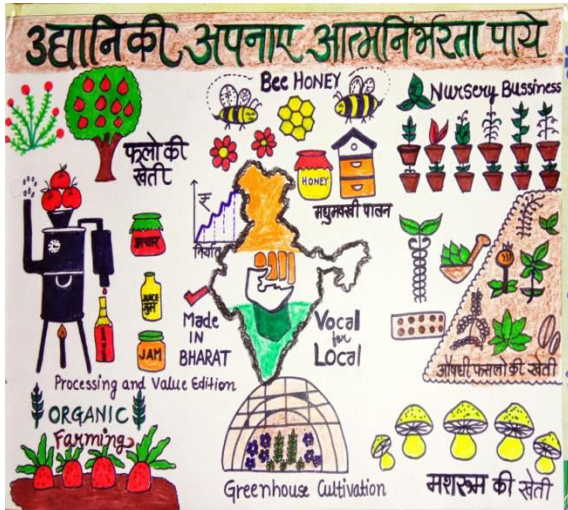 उद्यानिकी अपनाए आत्मनिर्भरता पाये
BEE HONEY
Nursery Bussiness
फलो की
खेती
HONEY
मधुमक्खी पालन
निर्यात
अचार
JUICE
जूस
JAM
Made
IN
BHARAT
Vocal
for
Local
औषधी फसलो की खेती
Processing and Value Edition
ORGANIC
Farming
Greenhouse Cultivation
मशरूम की खेती